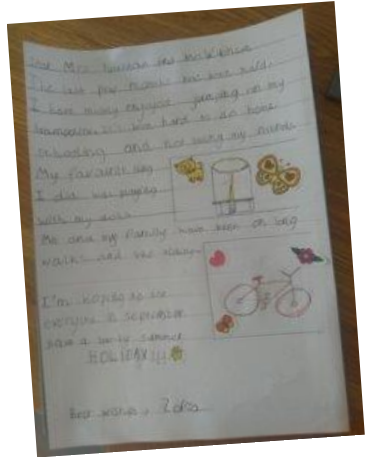 Dear Mrs
The last few months have been weird.
I have really enjoyed jumping on my
trampoline. It's been hard to do home
schooling and not seeing my friends.
My favourite thing
I did was playing
with my dolls.
Me and my family have been on long
walks and bike rides.
I'm hoping to see
everyone in september
have a lovely summer
HOLIDAY!!!
Best wishes,